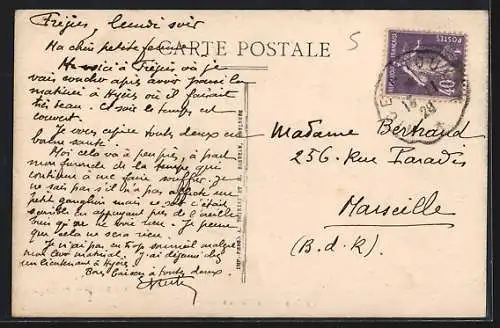 Fréjus, lundi soir
Ma chère petite femme,
CARTE POSTALE
5
Me voici à Fréjus où je
vais coucher après avoir passé la
matinée à Hyères où il faisait
très beau. Ce soir le temps est
couvert.
Je vous espère toutes deux en
bonne santé.
Moi cela va à peu près, à part
mon furoncle de la tempe qui
continue à me faire souffrir. Je
ne sais pas s'il n'a pas affecté un
petit ganglion mais ce soir c'était
sensible en appuyant près de l'oreille
bien qu'on ne voie rien. Je pense
que cela ne sera rien.
Je n'ai pas eu trop sommeil malgré
mon lever matinal. J'ai déjeuné avec
un lieutenant à Hyères.
Bons baisers à toutes deux.
POSTES
40
REPUBLIQUE FRANÇAISE
Madame Bertrand
256. Rue Paradis
Marseille
(B.d.R.)